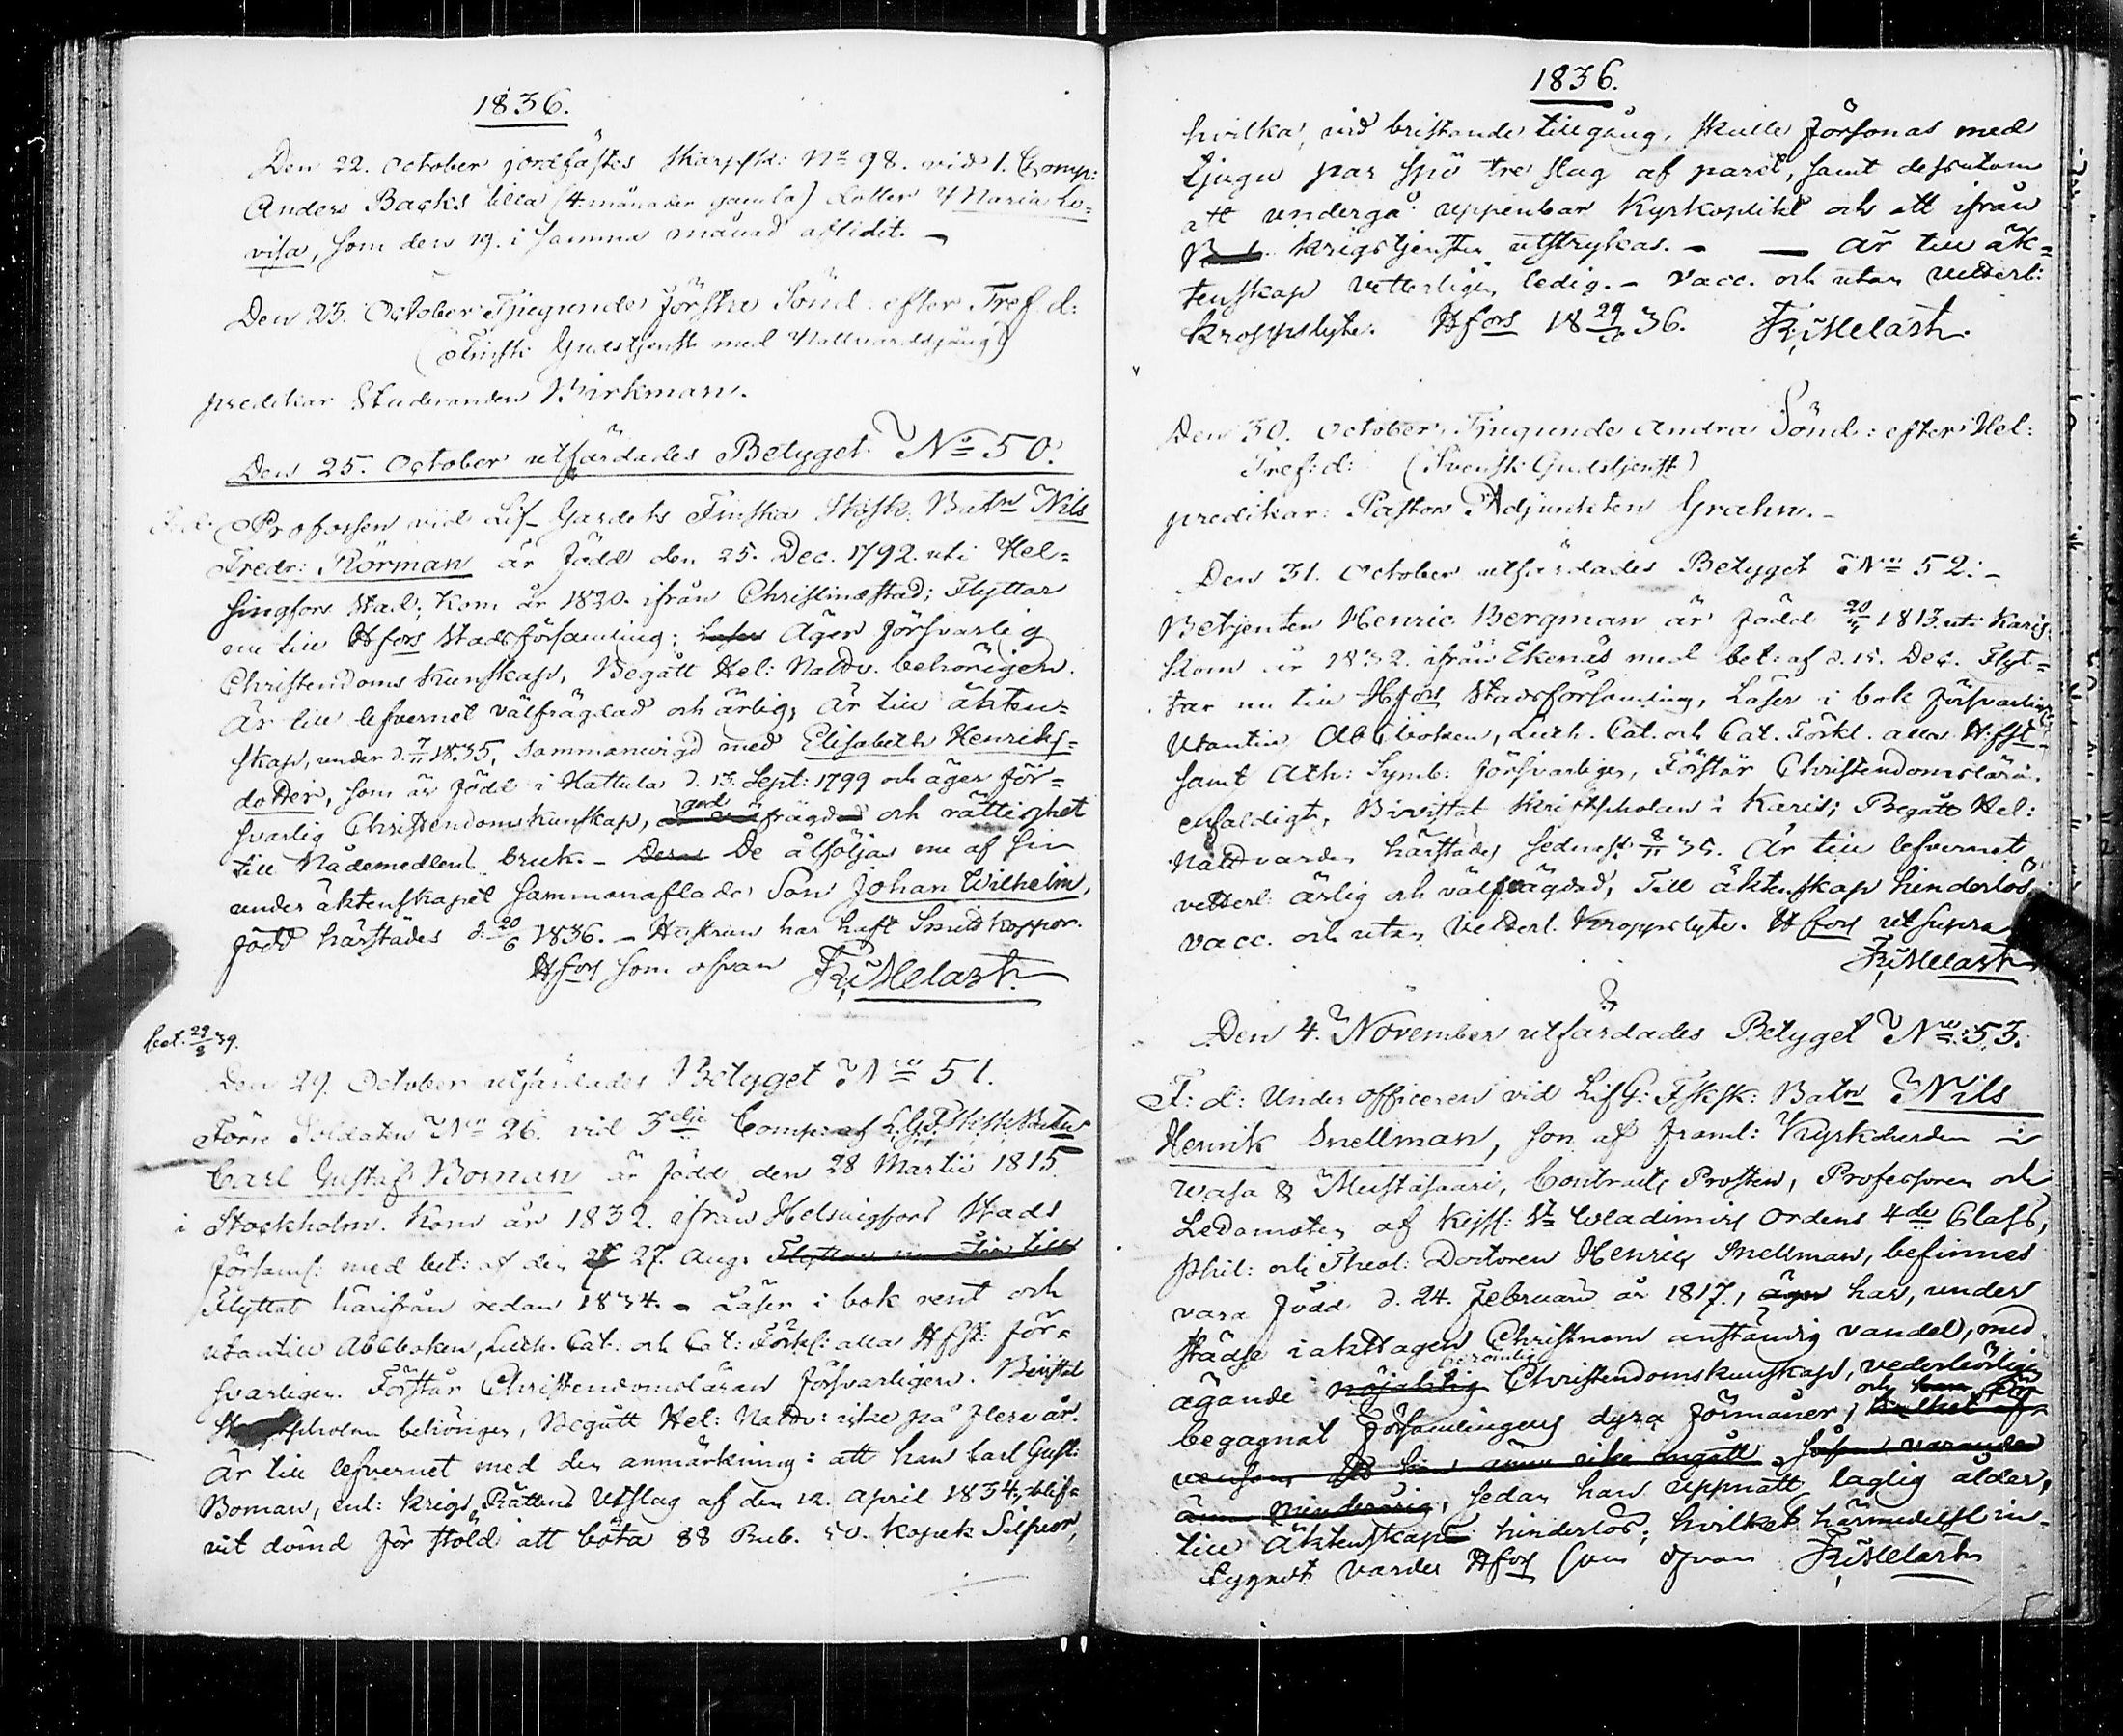 1836.
Den 22. October jordfästes Skarpsk: No 98. vid 1. Comp:
Anders Backs lilla (4. månader gamla) dotter Maria Lo=
visa, som den 19. i samma månad aflidit. —
Den 23. October Tjugunde förste Sönd. efter Tref. d:
(Finsk Gudstjenst med Nattvardsgång)
predikar Studeranden Birkman.
Den 25. October utfärdades Betyget No 50.
F.d. Profossen vid Lif-Gardets Finska Skarpsk. Batn Nils
Fredr: Flörman är född den 25. Dec. 1792. uti Hel=
singfors Stad; Kom år 1820. ifrån Christinæstad; Flyttar
nu till Hfors Stadsförsamling; Läser Äger försvarlig
Christendoms Kunskap, Begått Hel: Nattv. behörigen.
Är till lefvernet välfrägdad och ärlig, Är till äkten=
skap, under d. 7/11 1835, sammanvigd med Elisabeth Henriks=
dotter, som är född i Hattula d. 13. Sept: 1799 och äger för=
svarlig Christendoms kunskap, god frägd och rättighet
till Nådemedlens bruk. — Deras De åtföljas nu af sin
under äktenskapet sammanaflade Son Johan Wilhelm,
född härstädes d. 20/6 1836. — Hustrun har haft Smittkoppor.
Hfors som ofvan Fr: Melart.
bet. 29/8 39.
Den 29. October utfärdades Betyget No 51.
Förre Soldaten No 26. vid 3dje Comp: af L.G.F. Sksk. Batn
Carl Gustaf Boman är född den 28 Martii 1815
i Stockholm. Kom år 1832. ifrån Helsingfors Stads
församl: med bet: af den 27. Aug. Flyttar nu till
Flyttat härifrån redan 1834. — Läser i bok rent och
utantill Abcboken, Luth. Cat. och Cat: Förkl: alla Hfst: för=
svarligen. Förstår Christendomsläran försvarligen. Bevistat
Skriftskholan behörigen, Begått Hel: Nattv: icke på flera år.
Är till lefvernet med den anmärkning: att han Carl Gust:
Boman, enl: Krigs Rättens Utslag af den 12. April 1834, blif=
vit dömd för stöld att böta 88 Rub. 50. Kopek Silfver,
1836.
hvilka, vid bristande tillgång, skulle försonas med
tjugu par spö tre slag af paret, samt dessutom
att undergå uppenbar Kyrkoplikt och att ifrån
Krigstjensten utstrykas. — — Är till äk=
tenskap vetterligen ledig. — Vacc. och utan vetterl:
Kroppslyte. Hfors 18 29/10 36. Fr: Melart.
Den 30. October, Tjugunde Andra Sönd: efter Hel:
Tref: d: (Svensk Gudstjenst)
predikar: Pastors Adjunkten Grahn. —
Den 31. October utfärdades Betyget No 52: —
Betjenten Henric Bergman är född 20/11 1813. uti Karis
Kom år 1832. ifrån Ekenäs med bet: af d. 15. Dec. Flyt=
tar nu till Hfors Stadsförsamling, Läser i bok försvarligen
Utantill Abcboken, Luth. Cat. och Cat. Förkl. alla Hfst
samt Ath: Symb: försvarligen, Förstår Christendomslära.
enfaldigt, Bivistat Skriftskholan i Karis; Begått Hel:
Nattvarden härstädes sednast 8/11 35. Är till lefvernet
vetterl: ärlig och välfrägdad, Till äktenskap hinderlös,
vacc. och utan Vetterl. Kroppslyte. Hfors ut supra
Fr: Melart
Den 4. November utfärdades Betyget No: 53.
F: d: Under officeren vid LifG: Fsksk: Batn Nils
Henrik Snellman, son af framl: Kyrkoherden i
Wasa & Mustasaari, Contracts Prosten, Professoren och
Ledamoten af Kejsl: St Wladimirs Ordens 4de Class,
Phil: och Theol: Doctoren Henric Snellman, befinnes
vara född d. 24. Februarii år 1817, äger har, under
städse iakttagen Christnom anständig vandel, med
ägande nöjaktig berömlig Christendomskunskap, vederbörligen
begagnat församlingens dyra förmåner, och
ännu icke ingått, såsom varande
ännu minderårig, sedan han uppnått laglig ålder,
till Äktenskap hinderlös; hvilket härmedelst in=
tygadt varder Hfors som ofvan Fr: Melart